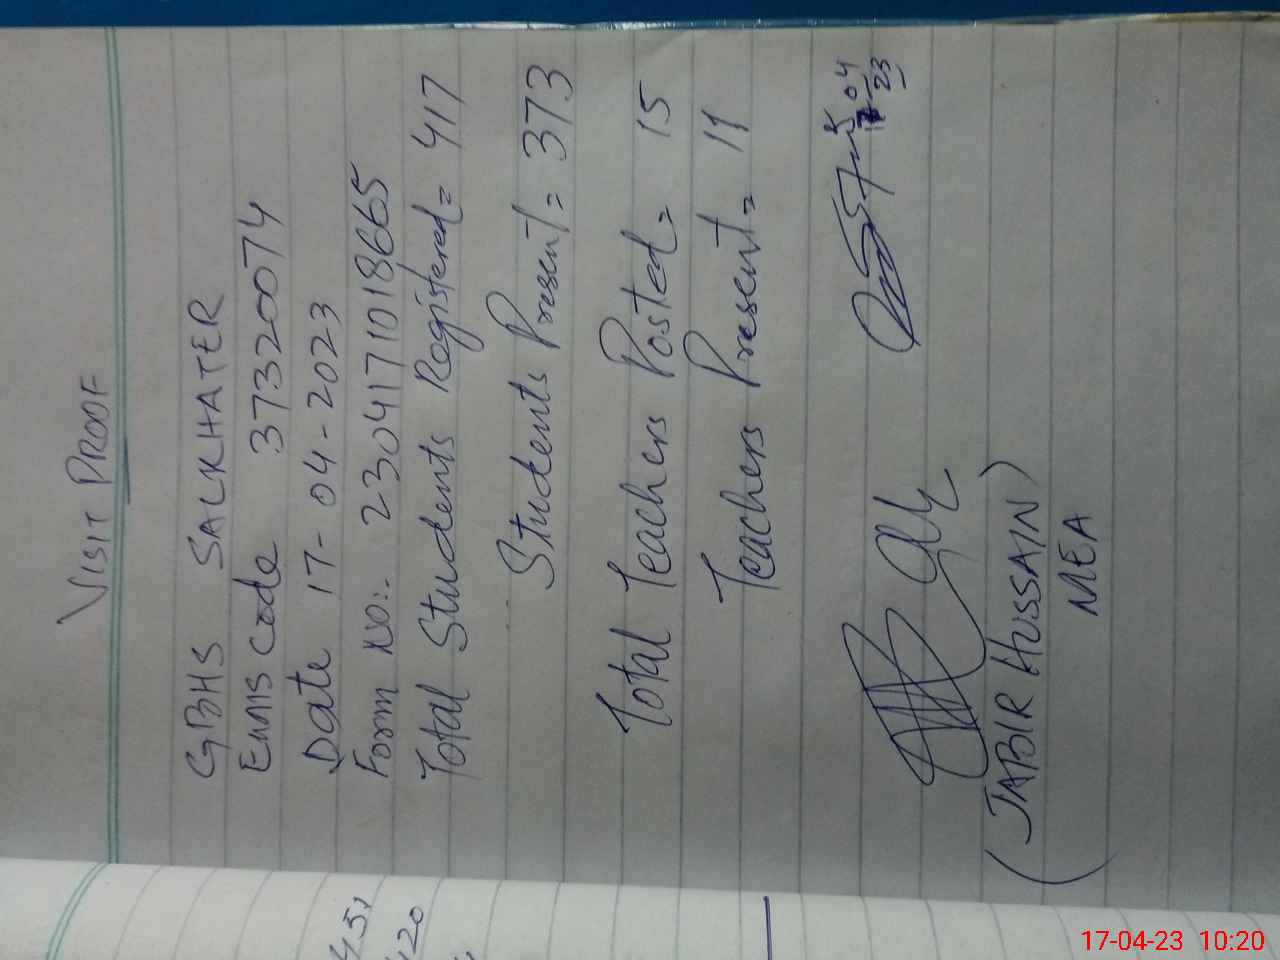 VISIT PROOF
GBHS SALKHATER
EMIS Code 37320074
Date 17-04-2023
Form No:. 2304171018665
Total Students Registered= 417
Students Present= 373
Total Teachers Posted= 15
Teachers Present= 11
04
23
(JABIR HUSSAIN)
MEA
451
420
17-04-23 10:20